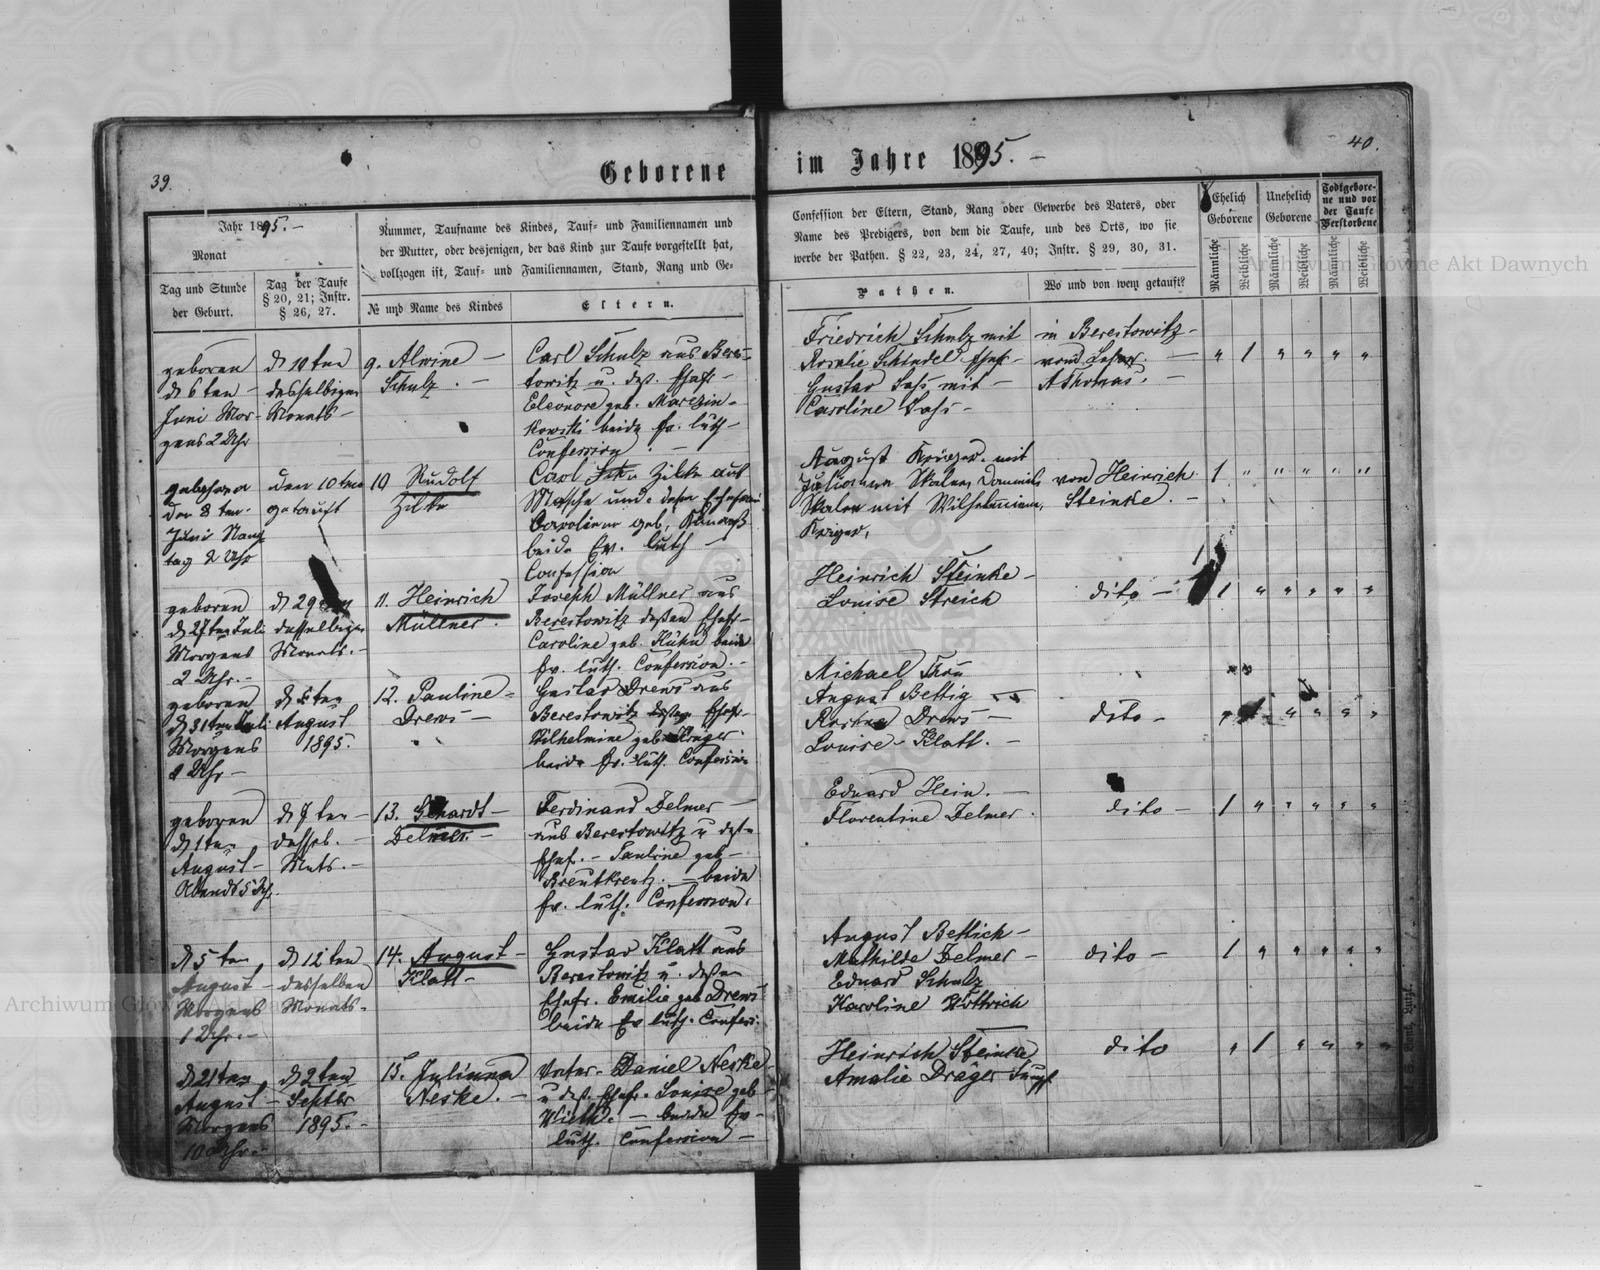 39.
Geborene
im Jahre 1895. –
40.
Jahr 1895. –
Monat
Tag und Stunde
der Geburt.
Tag der Taufe
§ 20, 21; Instr.
§ 26, 27.
Nummer, Taufname des Kindes, Tauf- und Familiennamen und
der Mutter, oder desjenigen, der das Kind zur Taufe vorgestellt hat,
vollzogen ist, Tauf- und Familiennamen, Stand, Rang und Ge-
№ und Name des Kindes
Eltern.
Confession der Eltern, Stand, Rang oder Gewerbe des Vaters, oder
Name des Predigers, von dem die Taufe, und des Orts, wo sie
werbe der Pathen. § 22, 23, 24, 27, 40; Instr. § 29, 30, 31.
Pathen.
Wo und von wem getauft?
Ehelich
Geborene
Unehelich
Geborene
Todtgebore-
ne und vor
der Taufe
Verstorbene
Männliche
Weibliche
Männliche
Weibliche
Männliche
Weibliche
geboren
d 6 ten –
Juni Mor-
gens 2 Uhr
d 10 ten
desselbigen
Monats –
9. Alwine –
Schulz. –
Carl Schulz aus Beres-
towitz u. deß. Ehefr –
Eleonore geb. Marczin-
kowski beide Ev. luth –
Confession. –
Friedrich Schulz mit
Rosalie Schindel Ehefr –
Gustav Sass mit –
Caroline Sass –
in Berestowitz –
vom Lehrer. –
A Thomas. –
1
geboren
den 8 ten.
Juni
tag 2 Uhr
den 10 ten
getauft
10 Rudolf
Zilke
Carl Zilke aus
und deßen Ehefrau
Caroline geb,
beide Ev. luth
Confession
August Krüger. mit
Julianna
mit Wilhelmine,
Kriger,
von Heinrich
Steinke. –
1
geboren
d 27 ten Juli
Morgens
2 Uhr. –
d 29 ten
desselbigen
Monats. –
11. Heinrich
Müllner.
Joseph Müllner aus
Berestowitz deßen Ehefr –
Caroline geb. Kühn beide
Ev. luth. Confession. –
Heinrich Steinke –
Louise Streich
dito –
1
geboren
d 31 ten Juli
Morgens
Uhr –
d ten
August
1895.
12. Pauline –
Drews –
Gustav Drews aus
Berestowitz deßen Ehefr –
Wilhelmine geb Krüger.
beide Ev. luth. Confession
Michael
August Bettig
Drews –
Louise – Klatt. –
dito –
geboren
d 1 ten
August –
Abends 5 Uhr.
d 7 ten –
desselb. –
Mnts. –
13.
Delmer. –
Ferdinand Delmer –
aus Berestowitz u deß –
Ehef. – Pauline geb –
Breutkreutz. – beide
Ev. luth. Confession.
Eduard Hein. –
Florentine Delmer.
dito –
1
d 5 ten
August –
Morgens
1 Uhr. –
d 12 ten
desselben
Monats.
14. August –
Klatt –
Gustav Klatt aus
Berestowitz u. deßen
Ehefr. Emilie geb Drews
beide Ev luth. Confess.
August Bettich –
Mathilde Delmer –
Eduard Schulz
Karoline
dito –
1
d 21 ten
August –
Morgens
10 Uhr. –
d 2 ten
Septbr
1895. –
15. Julianna
Neske. –
Vater – Daniel Neske
u deß. Ehefr. Louise geb
– beide Ev –
luth. Confession –
Heinrich Steinke
Amalie Dräger
dito
1
Archiwum Główne Akt Dawnych
Archiwum Główne Akt Dawnych